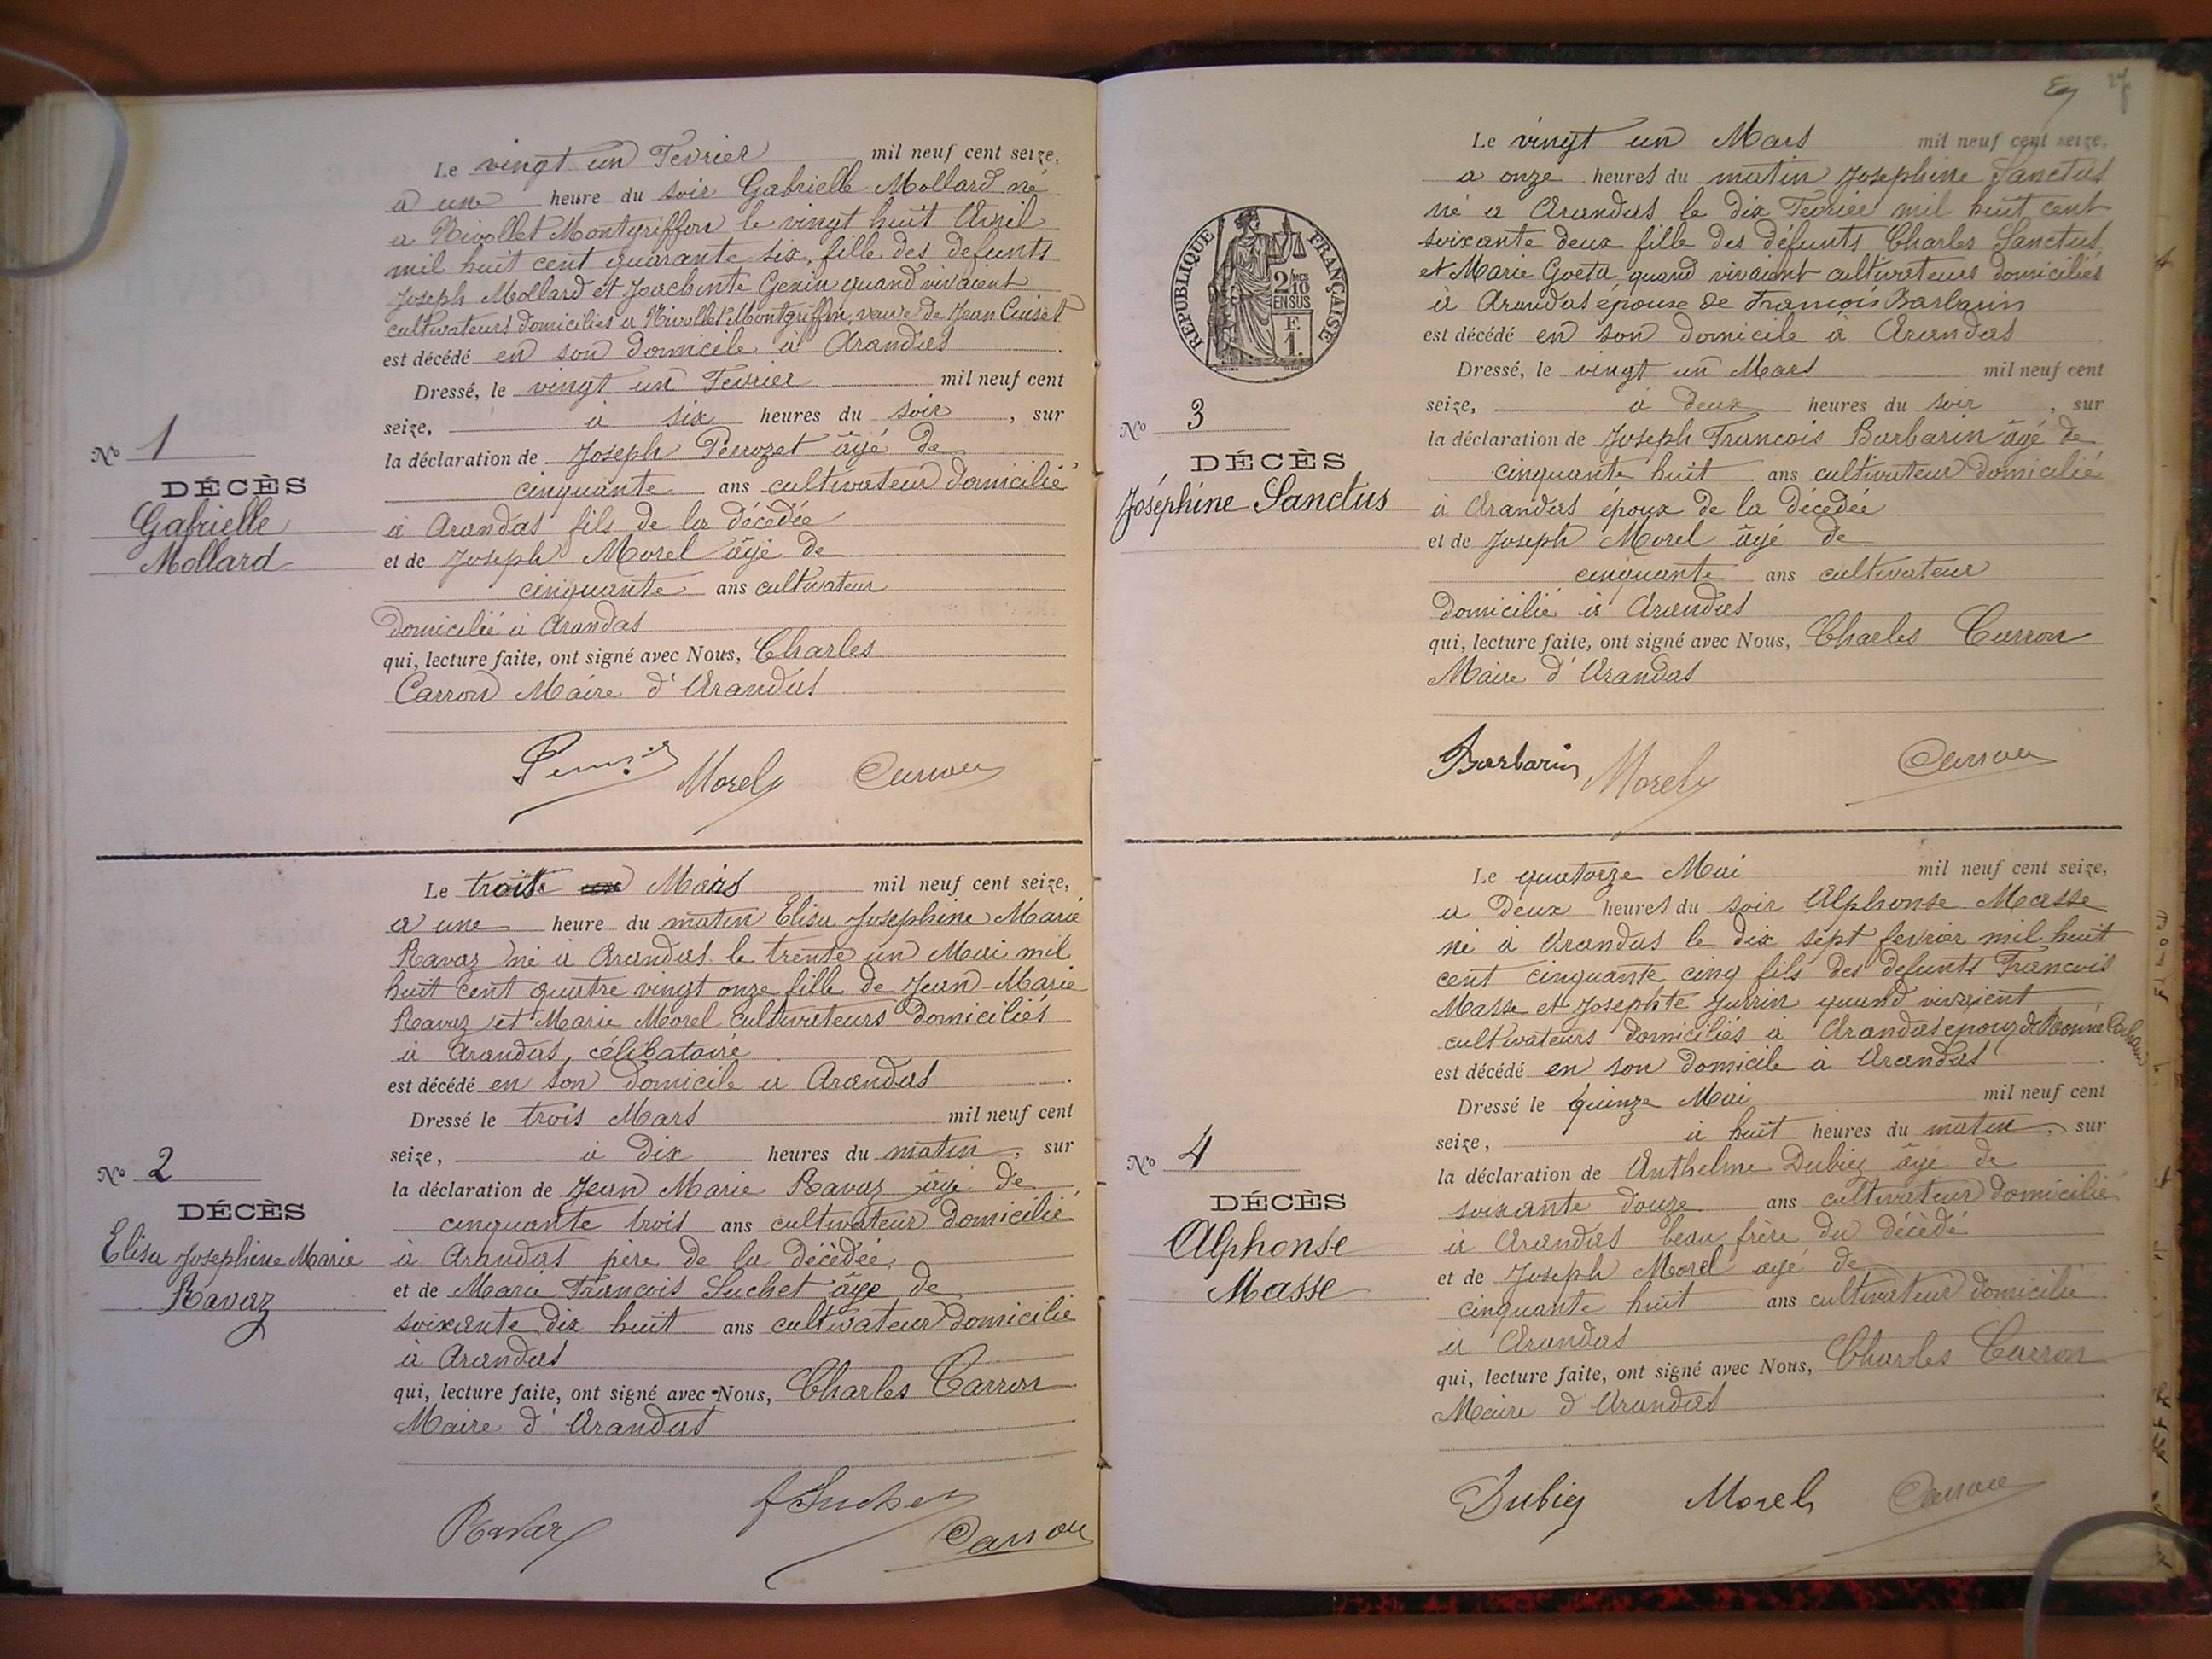 Le vingt un Fevrier mil neuf cent seize,
a une heure du soir Gabrielle Mollard né
a Nivollet Montgriffon le vingt huit Avril
mil huit cent quarante six, fille des defunts
Joseph Mollard et Jacinte Genin quand vivaient
cultivateurs domiciliés a Nivollet Montgriffon, veuve de Jean
est décédé en son domicile a Arandas
Dressé, le vingt un Fevrier mil neuf cent
seize, a six heures du soir, sur
la déclaration de Joseph Perrozet âgé de
cinquante ans cultivateur domicilié
à Arandas fils de la décédée
et de Joseph Morel âgé de
cinquante ans cultivateur
domicilié à Arandas
qui, lecture faite, ont signé avec Nous, Charles
Carron Maire d'Arandas
Nº 1
DÉCÈS
Gabrielle
Mollard
Morel Carron
Le trois Mars mil neuf cent seize,
a une heure du matin Elisa Josephine Marie
Ravaz né à Arandas le trente un Mai mil
huit cent quatre vingt onze fille de Jean-Marie
Ravaz et Marie Morel cultivateurs domiciliés
à Arandas, célibataire
est décédé en son domicile a Arandas
Dressé le trois Mars mil neuf cent
seize, à dix heures du matin, sur
la déclaration de Jean Marie Ravaz âgé de
cinquante trois ans cultivateur domicilié
à Arandas père de la décédée
et de Marie Francois Suchet âge de
soixante dix huit ans cultivateur domicilié
à Arandas
qui, lecture faite, ont signé avec Nous, Charles Carron
Maire d'Arandas
Nº 2
DÉCÈS
Elisa Josephine Marie
Ravaz
Ravaz f Suchet
Carron
Le vingt un Mars mil neuf cent seize,
a onze heures du matin Josephine Sanctus
né a Arandas le dix Fevrier mil huit cent
soixante deux fille des défunts Charles Sanctus
et Marie Goeta quand vivaient cultivateurs domiciliés
à Arandas épouse de François Barbarin
est décédé en son domicile à Arandas
Dressé, le vingt un Mars mil neuf cent
seize, a deux heures du soir, sur
la déclaration de Joseph Francois Barbarin âgé de
cinquante huit ans cultivateur domicilié
à Arandas époux de la décédée
et de Joseph Morel âgé de
cinquante ans cultivateur
domicilié à Arandas
qui, lecture faite, ont signé avec Nous, Charles Carron
Maire d'Arandas
RÉPUBLIQUE FRANÇAISE
2/10 EN SUS
F. 1.
Nº 3
DÉCÈS
Joséphine Sanctus
Barbarin Morel Carron
Le quatorze Mai mil neuf cent seize,
a deux heures du soir Alphonse Masse
né à Arandas le dix sept fevrier mil huit
cent cinquante cinq fils des defunts Francois
Masse et Josephte Jurrin quand vivaient
cultivateurs domiciliés à Arandas epoux de
est décédé en son domicile à Arandas
Dressé le quinze Mai mil neuf cent
seize, à huit heures du matin, sur
la déclaration de Anthelme Dubiez âge de
soixante douze ans cultivateur domicilié
à Arandas beau frère du décédé
et de Joseph Morel agé de
cinquante huit ans cultivateur domicilié
à Arandas
qui, lecture faite, ont signé avec Nous, Charles Carron
Maire d'Arandas
Nº 4
DÉCÈS
Alphonse
Masse
Dubiez Morel Carron